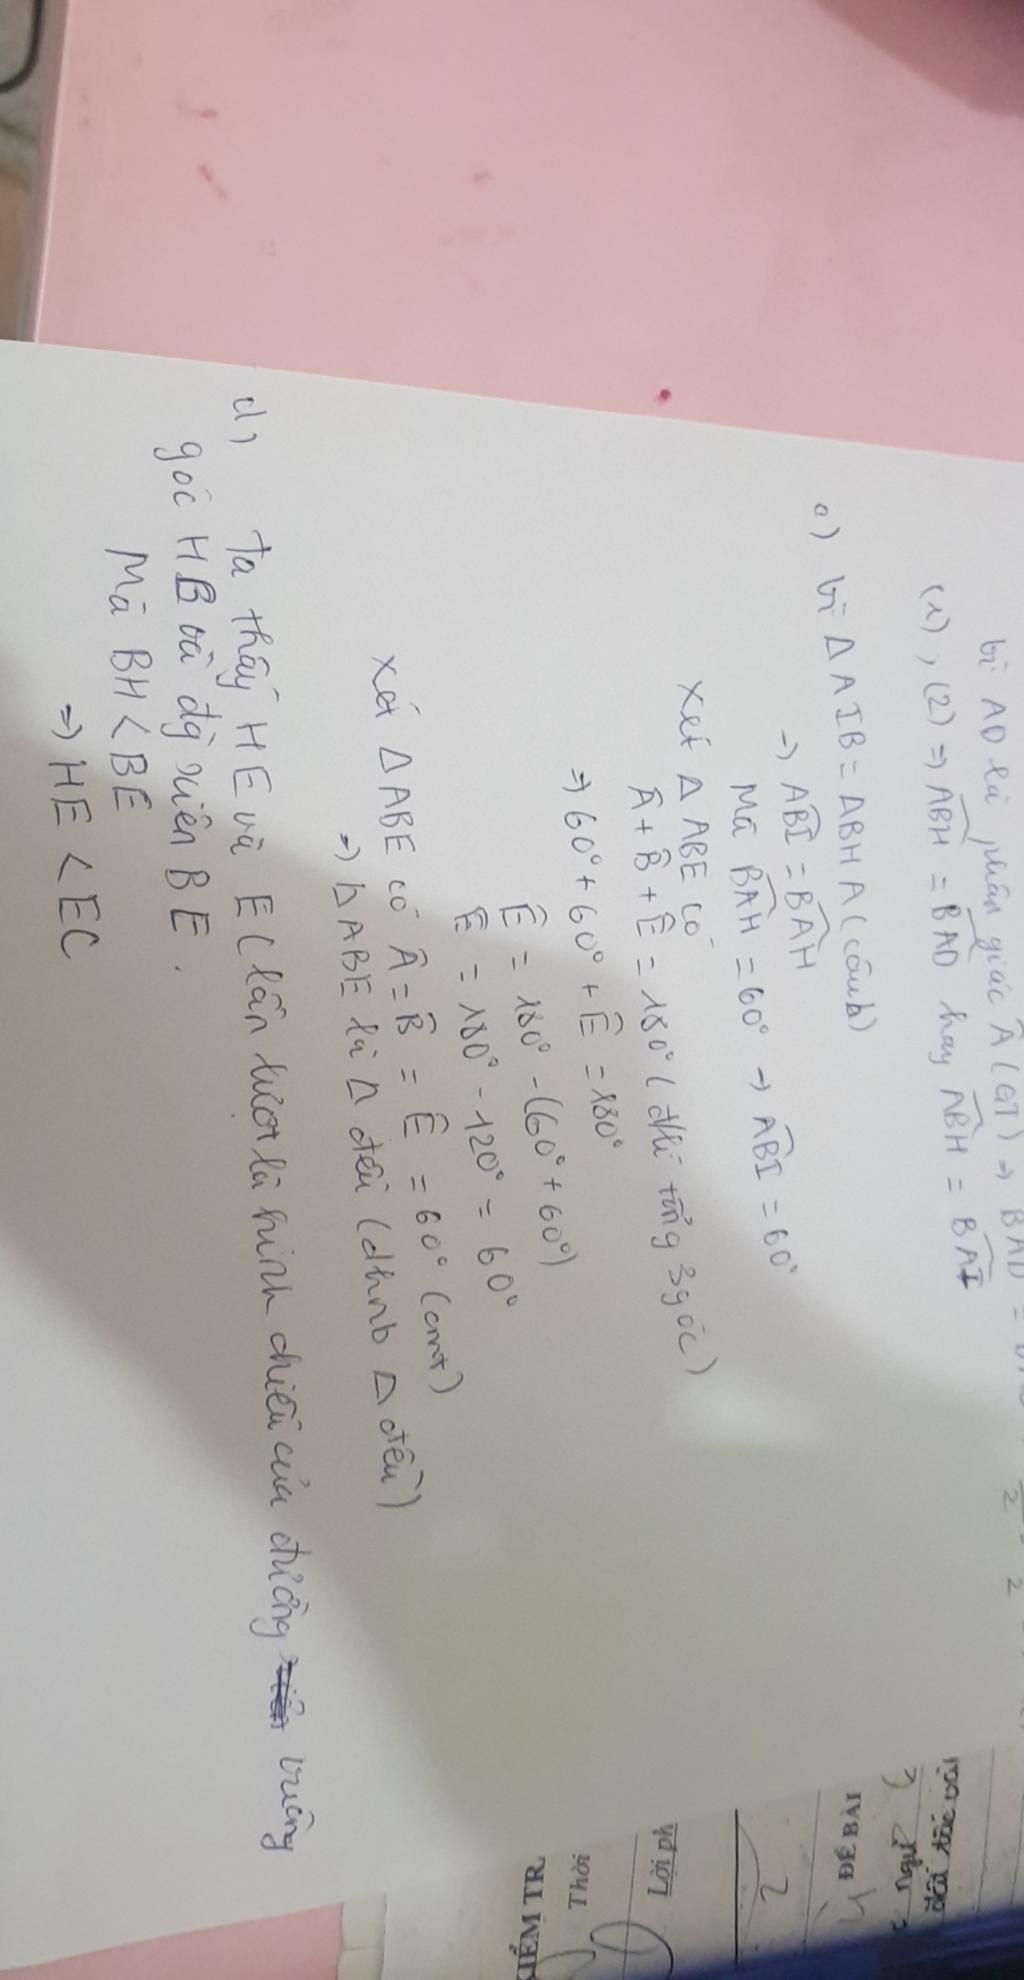 vì AD là phân giác Â (GT) → BAD =
(1), (2) ⇒ ABH = BAD hay ABH = BAI
c) Vì Δ AIB = Δ BHA (câu b)
→ ABI = BAH
Mà BAH = 60° → ABI = 60°
Xét Δ ABE có
Â + B̂ + Ê = 180° (đlí tổng 3 góc)
⇒ 60° + 60° + Ê = 180°
Ê = 180° - (60° + 60°)
Ê = 180° - 120° = 60°
Xét Δ ABE có Â = B̂ = Ê = 60° (cmt)
⇒ Δ ABE là Δ đều (dhnb Δ đều)
d, Ta thấy HE và EC lần lượt là hình chiếu của đường vuông
góc HB và đg xiên BE.
Mà BH < BE
⇒ HE < EC
ĐỀ BÀI
Lời ph
Thời
IỂM TR